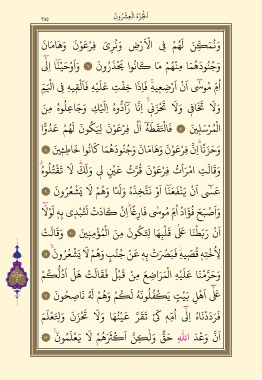 الجزء العشرون
٣٨٥
وَنُمَكِّنَ لَهُمْ فِي الْأَرْضِ وَنُرِيَ فِرْعَوْنَ وَهَامَانَ
وَجُنُودَهُمَا مِنْهُمْ مَا كَانُوا يَحْذَرُونَ ٦ وَأَوْحَيْنَا إِلَىٰ
أُمِّ مُوسَىٰ أَنْ أَرْضِعِيهِ فَإِذَا خِفْتِ عَلَيْهِ فَأَلْقِيهِ فِي الْيَمِّ
وَلَا تَخَافِي وَلَا تَحْزَنِي إِنَّا رَادُّوهُ إِلَيْكِ وَجَاعِلُوهُ مِنَ
الْمُرْسَلِينَ ٧ فَالْتَقَطَهُ آلُ فِرْعَوْنَ لِيَكُونَ لَهُمْ عَدُوًّا
وَحَزَنًا إِنَّ فِرْعَوْنَ وَهَامَانَ وَجُنُودَهُمَا كَانُوا خَاطِئِينَ ٨
وَقَالَتِ امْرَأَتُ فِرْعَوْنَ قُرَّتُ عَيْنٍ لِي وَلَكَ لَا تَقْتُلُوهُ
عَسَىٰ أَنْ يَنْفَعَنَا أَوْ نَتَّخِذَهُ وَلَدًا وَهُمْ لَا يَشْعُرُونَ ٩
وَأَصْبَحَ فُؤَادُ أُمِّ مُوسَىٰ فَارِغًا إِنْ كَادَتْ لَتُبْدِي بِهِ لَوْلَا
أَنْ رَبَطْنَا عَلَىٰ قَلْبِهَا لِتَكُونَ مِنَ الْمُؤْمِنِينَ ١٠ وَقَالَتْ
لِأُخْتِهِ قُصِّيهِ فَبَصُرَتْ بِهِ عَنْ جُنُبٍ وَهُمْ لَا يَشْعُرُونَ ١١
وَحَرَّمْنَا عَلَيْهِ الْمَرَاضِعَ مِنْ قَبْلُ فَقَالَتْ هَلْ أَدُلُّكُمْ
عَلَىٰ أَهْلِ بَيْتٍ يَكْفُلُونَهُ لَكُمْ وَهُمْ لَهُ نَاصِحُونَ ١٢
فَرَدَدْنَاهُ إِلَىٰ أُمِّهِ كَيْ تَقَرَّ عَيْنُهَا وَلَا تَحْزَنَ وَلِتَعْلَمَ
أَنَّ وَعْدَ اللَّهِ حَقٌّ وَلَٰكِنَّ أَكْثَرَهُمْ لَا يَعْلَمُونَ ١٣